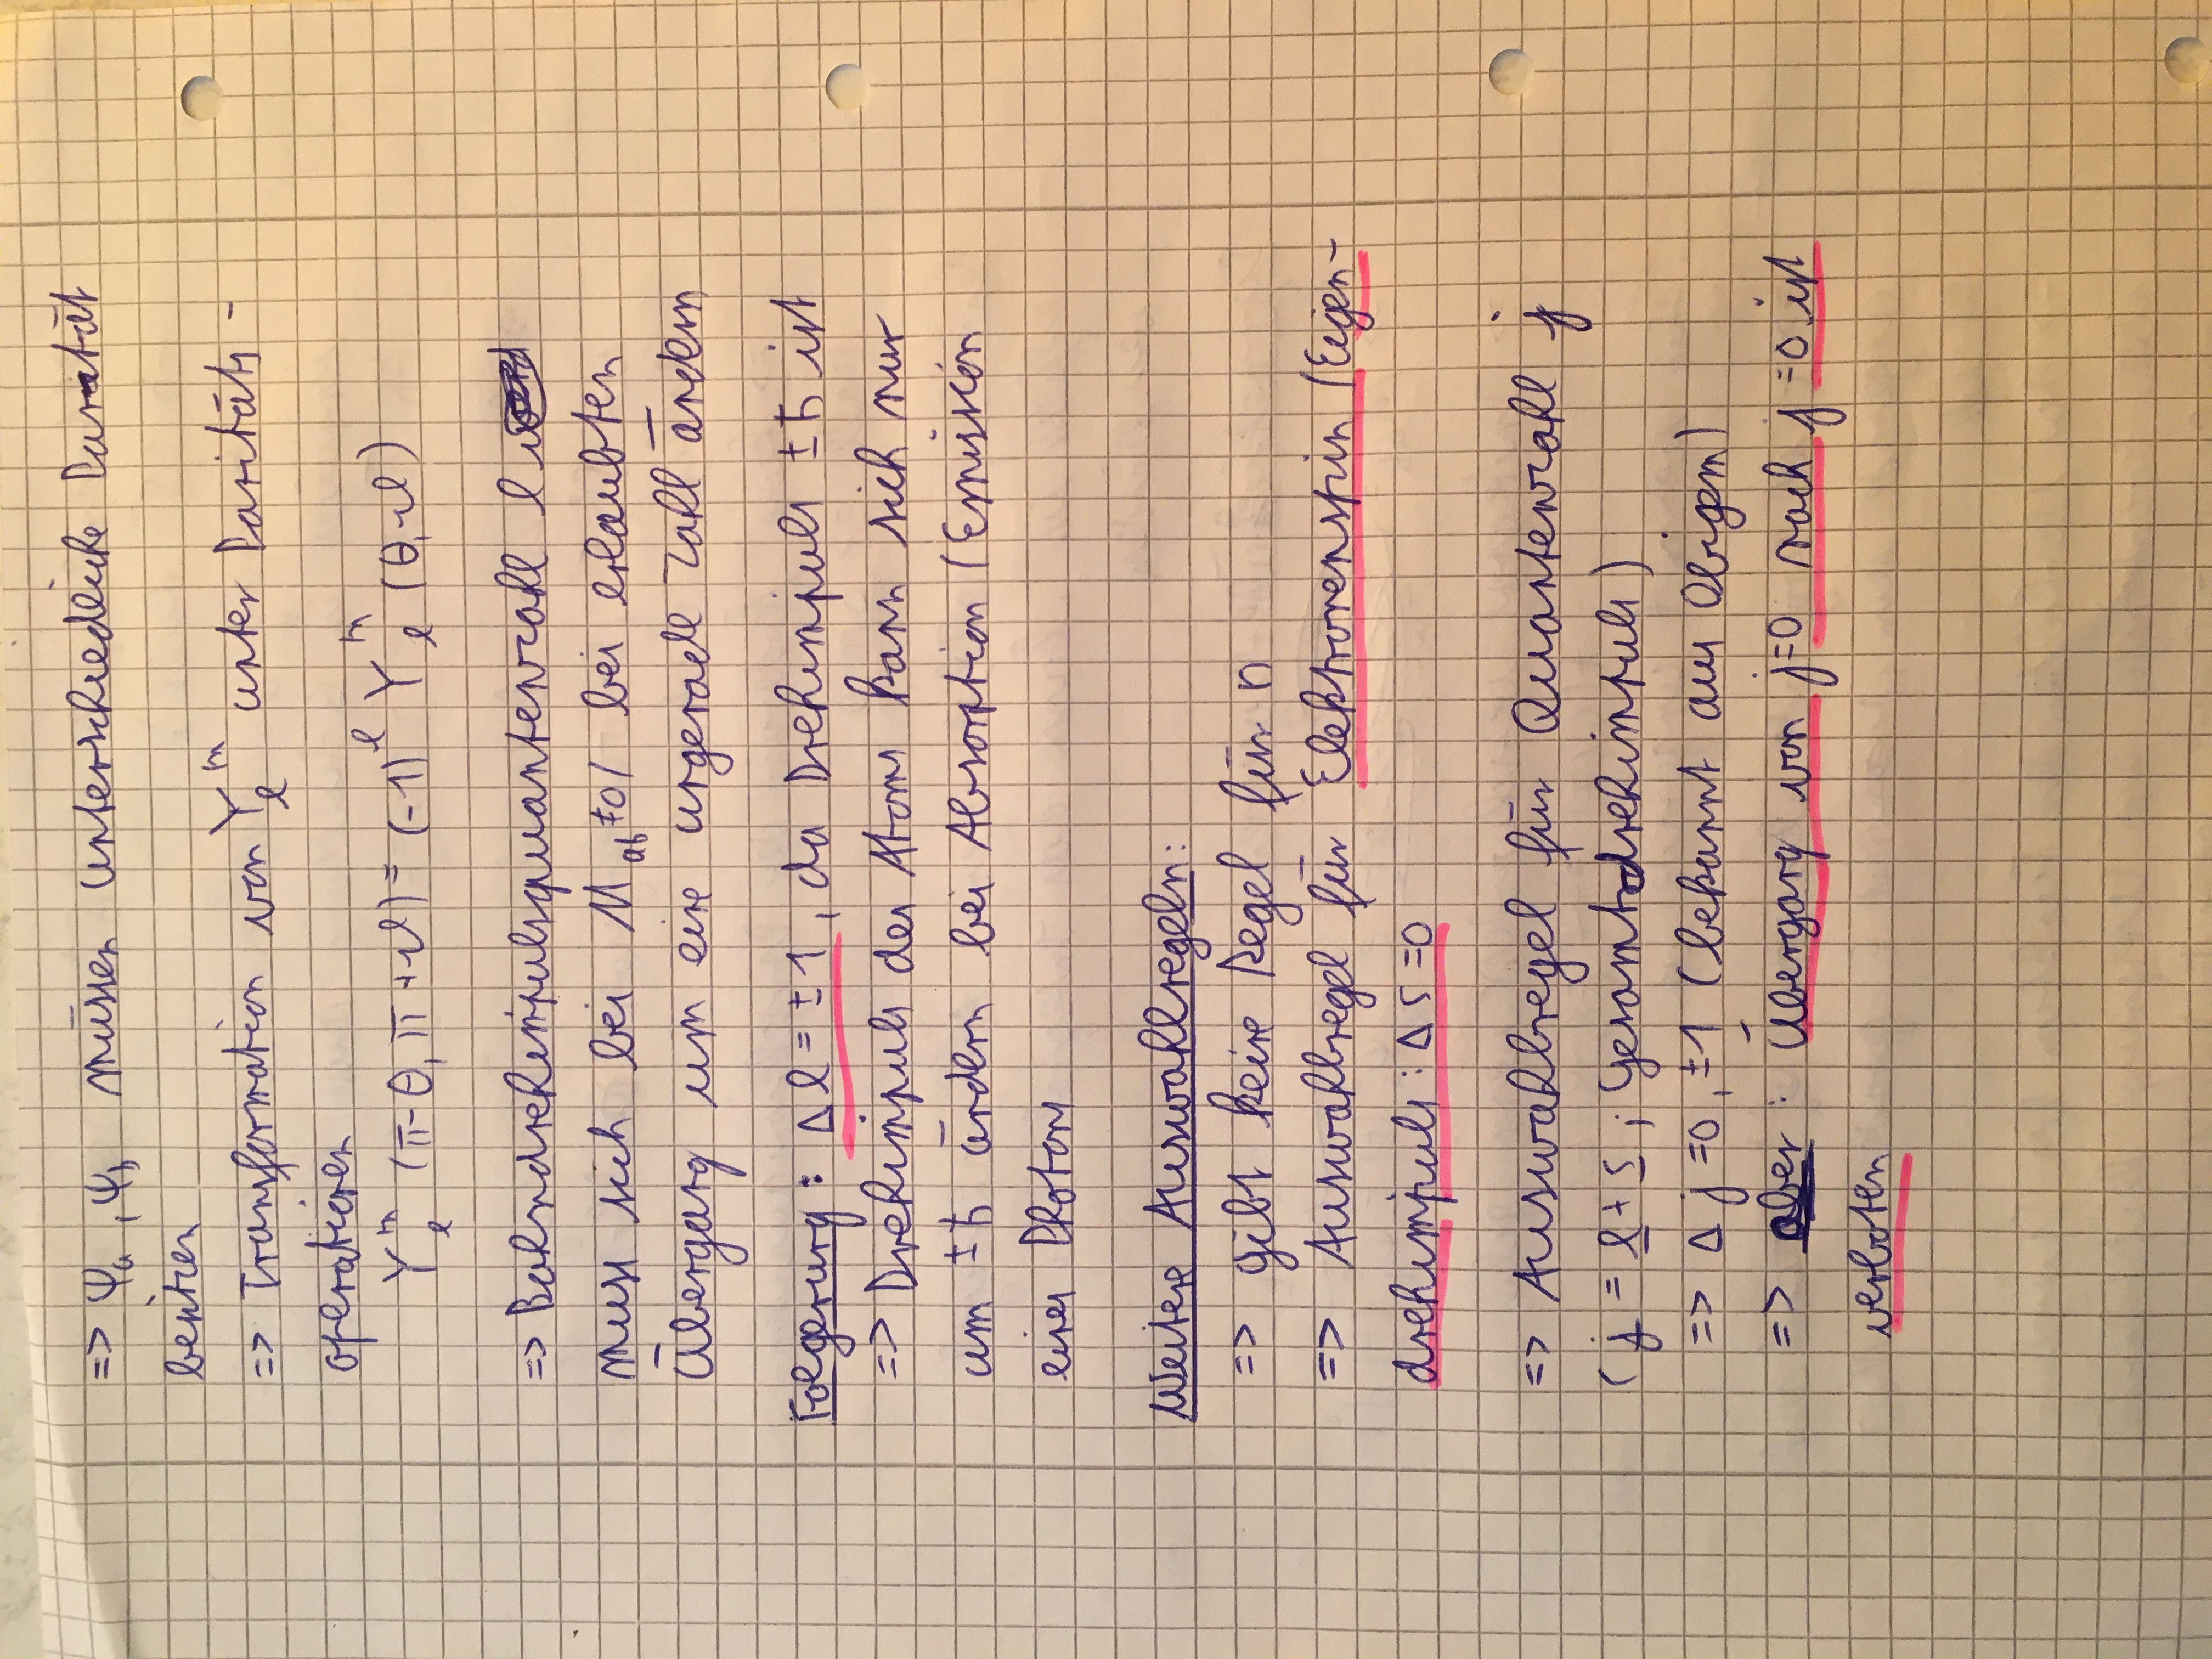 => ψa, ψb müssen unterschiedliche Parität
besitzen
=> Transformation von Y_l^m unter Paritäts-
operationen
Y_l^m (π-θ, π+φ) = (-1)^l Y_l^m (θ, φ)
=> Bahndrehimpulsquantenzahl l
muss sich bei M_ab ≠ 0 / bei erlaubten
Übergang um eine ungerade Zahl ändern
Folgerung: Δl = ±1, da Drehimpuls ±ħ ist
=> Drehimpuls des Atoms kann sich nur
um ±ħ ändern bei Absorption / Emission
eines Photons
Weitere Auswahlregeln:
=> gibt keine Regel für n
=> Auswahlregel für Elektronenspin / Eigen-
drehimpuls: Δs = 0
=> Auswahlregel für Quantenzahl j
(j = l + s ; Gesamtdrehimpuls)
=> Δj = 0, ±1 (bekannt aus Obigem)
=> aber: Übergang von j=0 nach j=0 ist
verboten